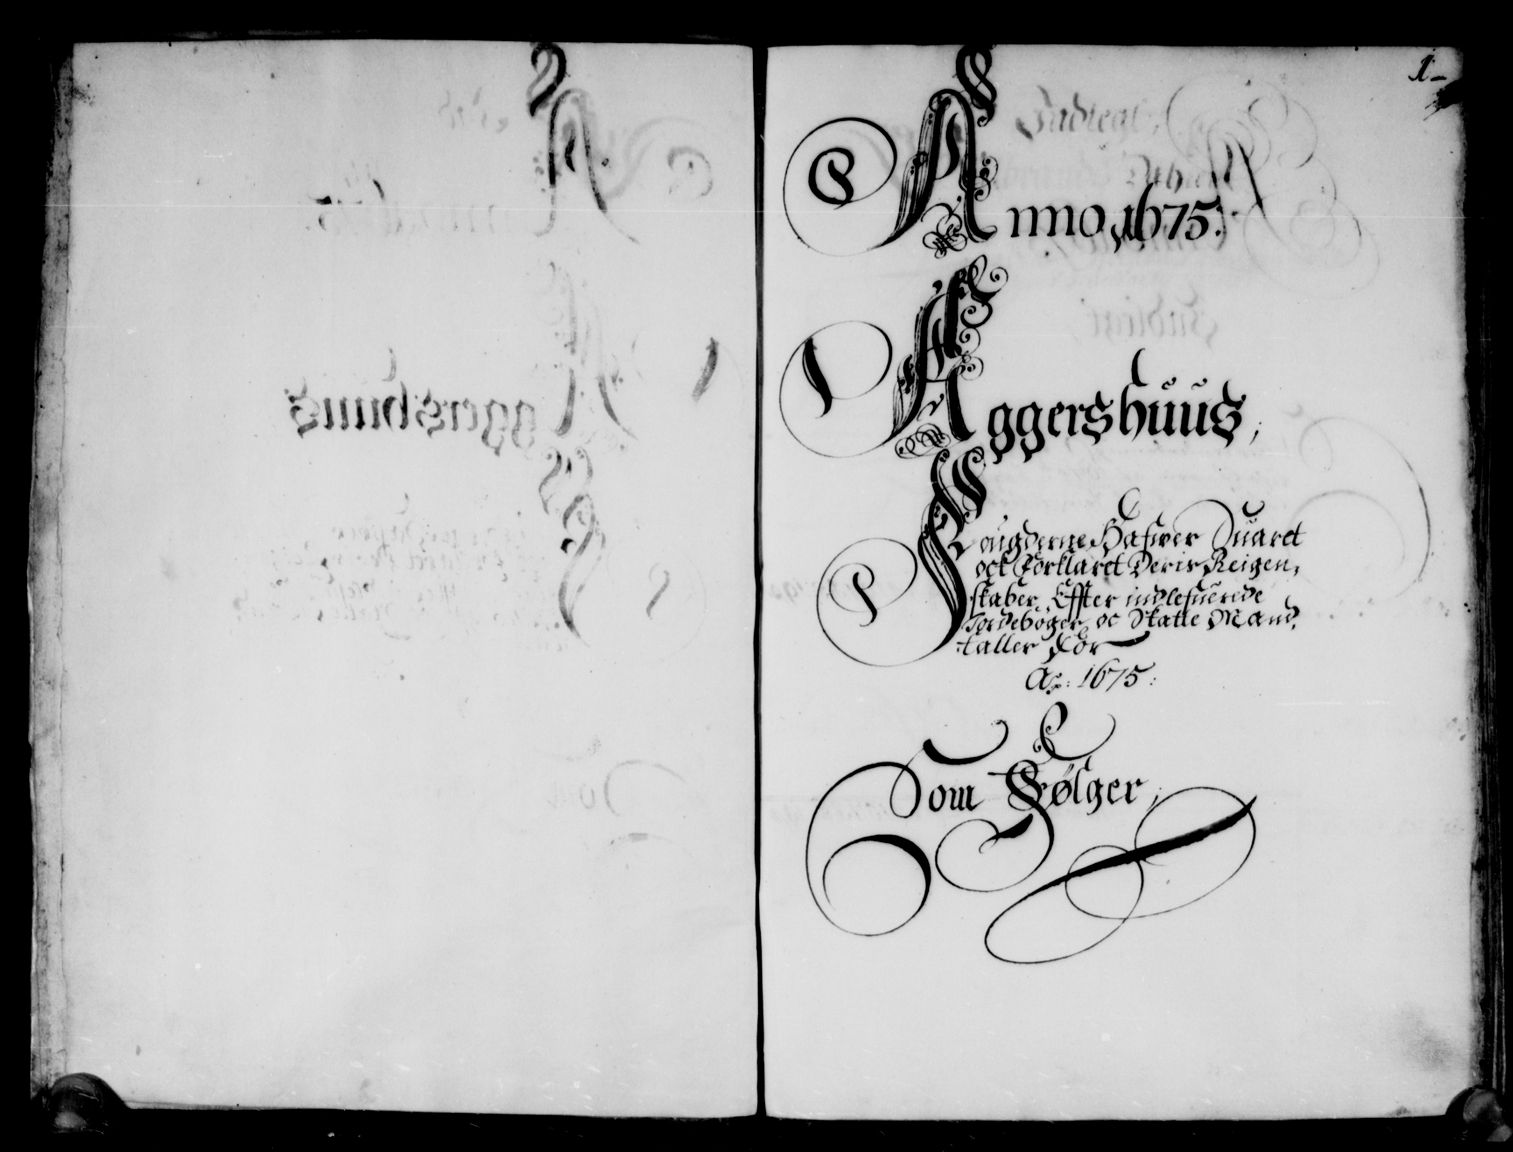 1
Anno 1675:
Aggershuus,
Fougderne Hafwer Suaret
ock Forklaret Deris Reigen,
skaber, Effter indlefuerede
Jordebøger, oc Skatte Mand,
taller For
Ao: 1675:
Som Følger,